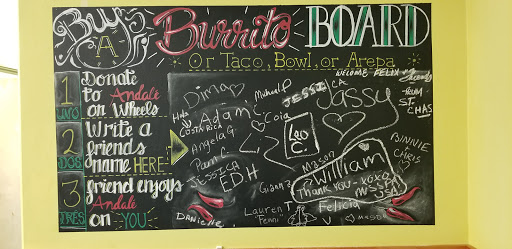 Buy A Burrito BOARD
Or Taco, Bowl, or Arepa
1 UNO
Donate
to Andale
on Wheels
2 DOS
Write a
friends
name HERE
3 TRES
friend enjoys
Andale
on YOU
WELCOME FELIX
FROM
ST.
CHAS
Dima
Michael P
JESSICA
Jassy
Adam
COSTA RICA
Coia
Angela G.
Leo
C.
Pam C
JESSICA
EDH
BINNIE
CHRIS
Mason
William
THANK YOU - XOXO
Felicia
Lauren T
Fenni
DANIELLE